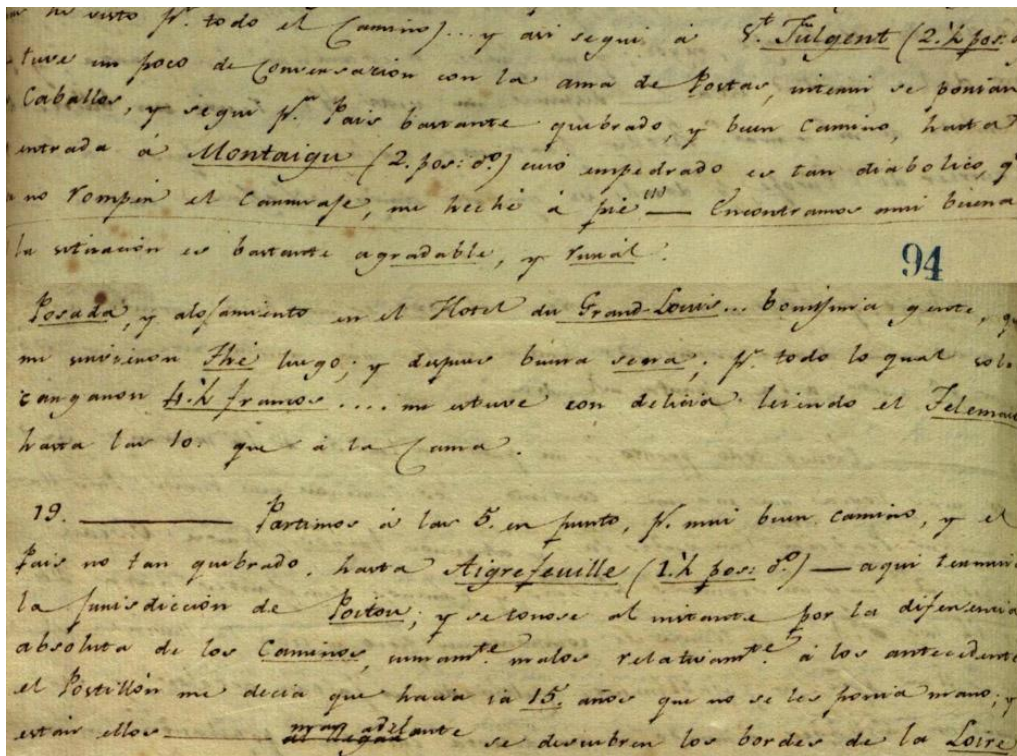 he visto pr. todo el Camino)... y asi segui à St. Fulgent (2.½ pos:
tuve un poco de Conversazion con la ama de Postas, interin se ponian
Caballos, y segui pr. Pais bastante quebrado, y buen Camino, hasta
entrada à Montaigu (2. pos: do.) cuio empedrado es tan diabolico, q
no rompen el Carruaje, me heché à pie — Encontramos mui buena
la situación es bastante agradable, y rural.
94
Posada, y alojamiento en el Hotel du Grand-Louis... bonisima gente,
me sirvieron Thé luego; y despues buena sena; pr. todo lo qual
cargaron 4.½ francos .... me estuve con delicia leiendo el Telemaco
hasta las 10. que à la Cama.
19. ——— Partimos à las 5. en punto, pr. mui buen camino, y el
Pais no tan quebrado, hasta Aigrefeuille (1.½ pos: do.) — aqui
la jurisdicción de Poitou; y se conose al instante por la diferencia
absoluta de los Caminos, sumamte. malos relativamte. à los antecedente
el Postillón me decia que hacia ia 15. años que no se les ponia mano; y
estàn ellos ——— mas adelante se descubren los bordes de la Loire